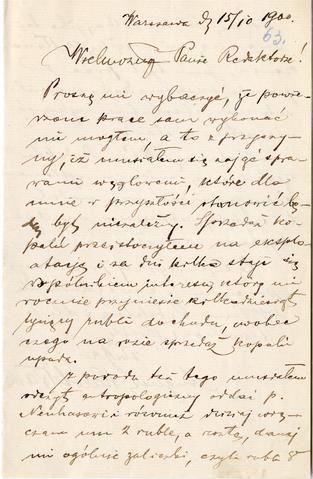 Warszawa d. 15/10 1900.
63.
Wielmożny Panie Redaktorze!
Proszę mi wybaczyć, że powie-
rzone prace sam wykonać
nie mogłem, a to z przyczy-
ny, iż musiałem się zająć spra-
wami węglowemi, które dla
mnie w przyszłości stanowić bę-
dą byt niezależny. Sprzedaż ko-
palń przeistoczyłem na eksplo-
atację i za dni kilka staję się
wspólnikiem interesu, który mi
rocznie przyniesie kilkadziesiąt
tysięcy rubli dochodu, wobec
czego na razie sprzedaż kopalń
upada.
Z powodu też tego musiałem
odczyt antropologiczny oddać p.
Neuhausowi również dzisiaj wrę-
czam mu 2 ruble, a resztę, danej
mi ogólnie zaliczki, czyli rubli 8